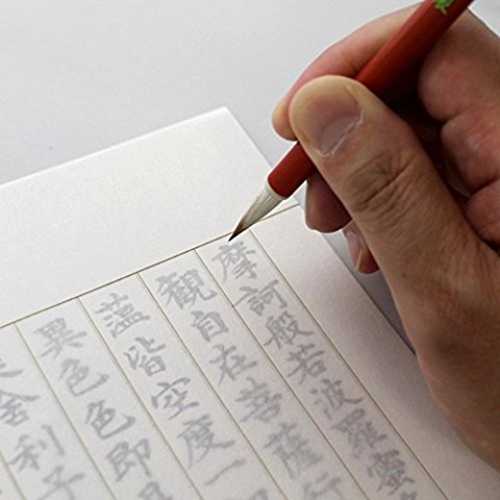 摩訶般若波羅蜜
観自在菩薩行
蘊皆空度一
異色色即是
舎利子